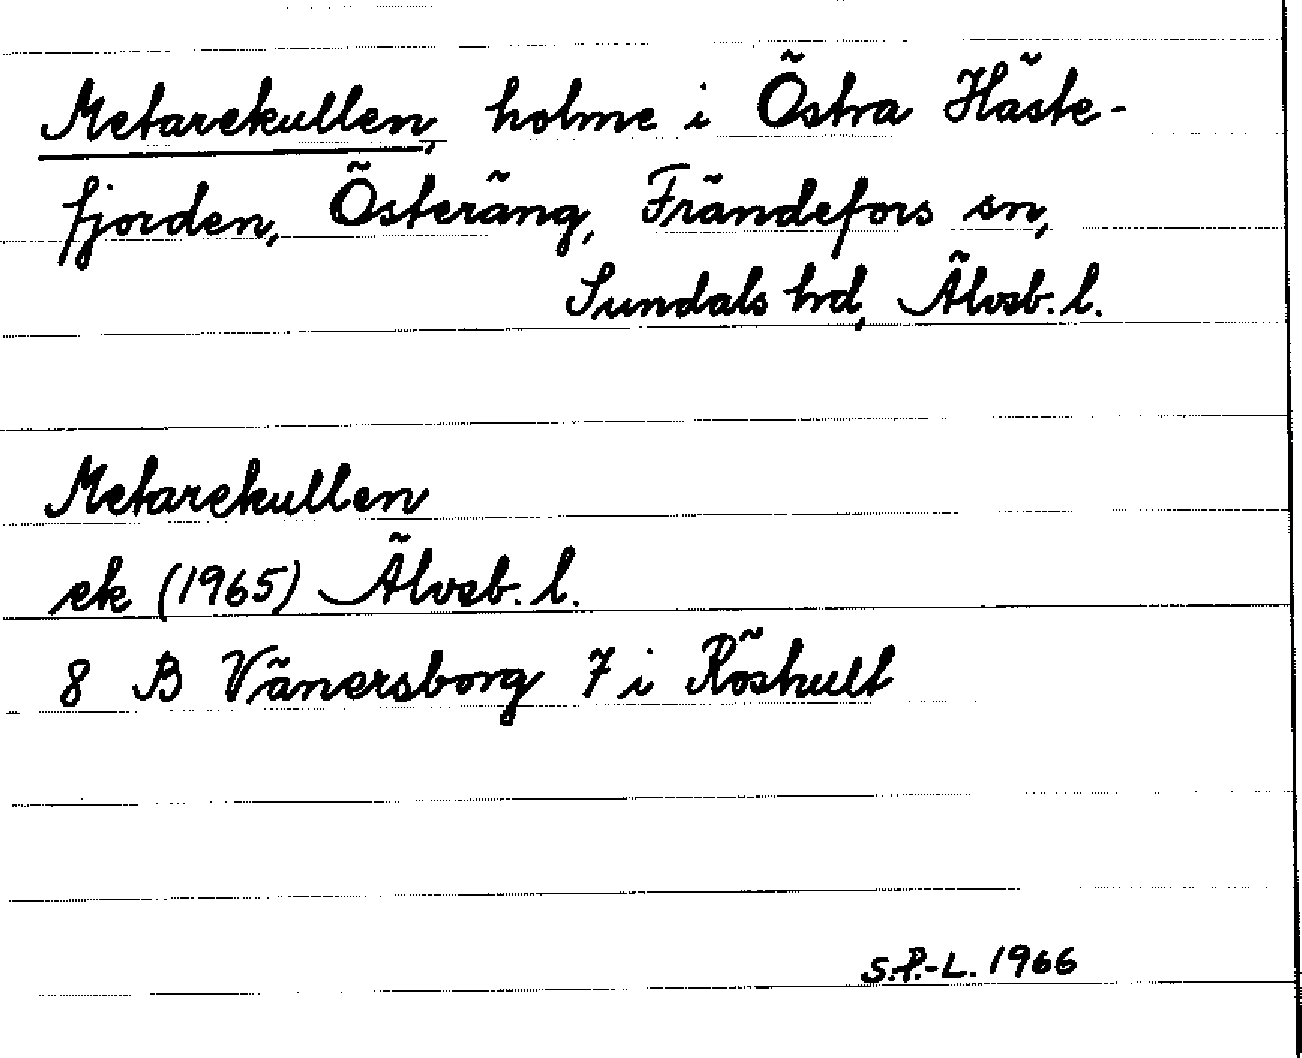 Metarekullen, holme i Östra Häste-
fjorden, Österäng, Frändefors sn,
Sundals hrd, Älvsb. l.
Metarekullen
ek (1965) Älvsb. l.
8 B Vänersborg 7 i Röshult
S.P.-L. 1966